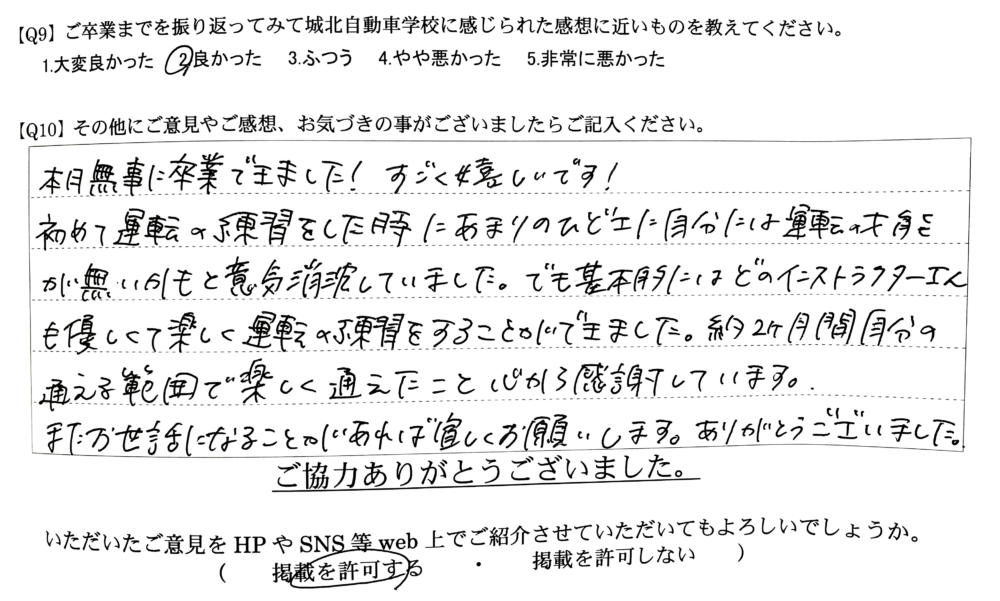 【Q9】ご卒業までを振り返ってみて城北自動車学校に感じられた感想に近いものを教えてください。
1.大変良かった 2.良かった 3.ふつう 4.やや悪かった 5.非常に悪かった
【Q10】その他にご意見やご感想、お気づきの事がございましたらご記入ください。
本日無事に卒業できました！ すごく嬉しいです！
初めて運転の練習をした時にあまりのひどさに自分には運転の才能
が無いかもと意気消沈していました。でも基本的にはどのインストラクターさん
も優しくて楽しく運転の練習をすることができました。約2ヶ月間自分の
通える範囲で楽しく通えたこと心から感謝しています。
またお世話になることがあれば宜しくお願いします。ありがとうございました。
ご協力ありがとうございました。
いただいたご意見をHPやSNS等web上でご紹介させていただいてもよろしいでしょうか。
（ 掲載を許可する ・ 掲載を許可しない ）